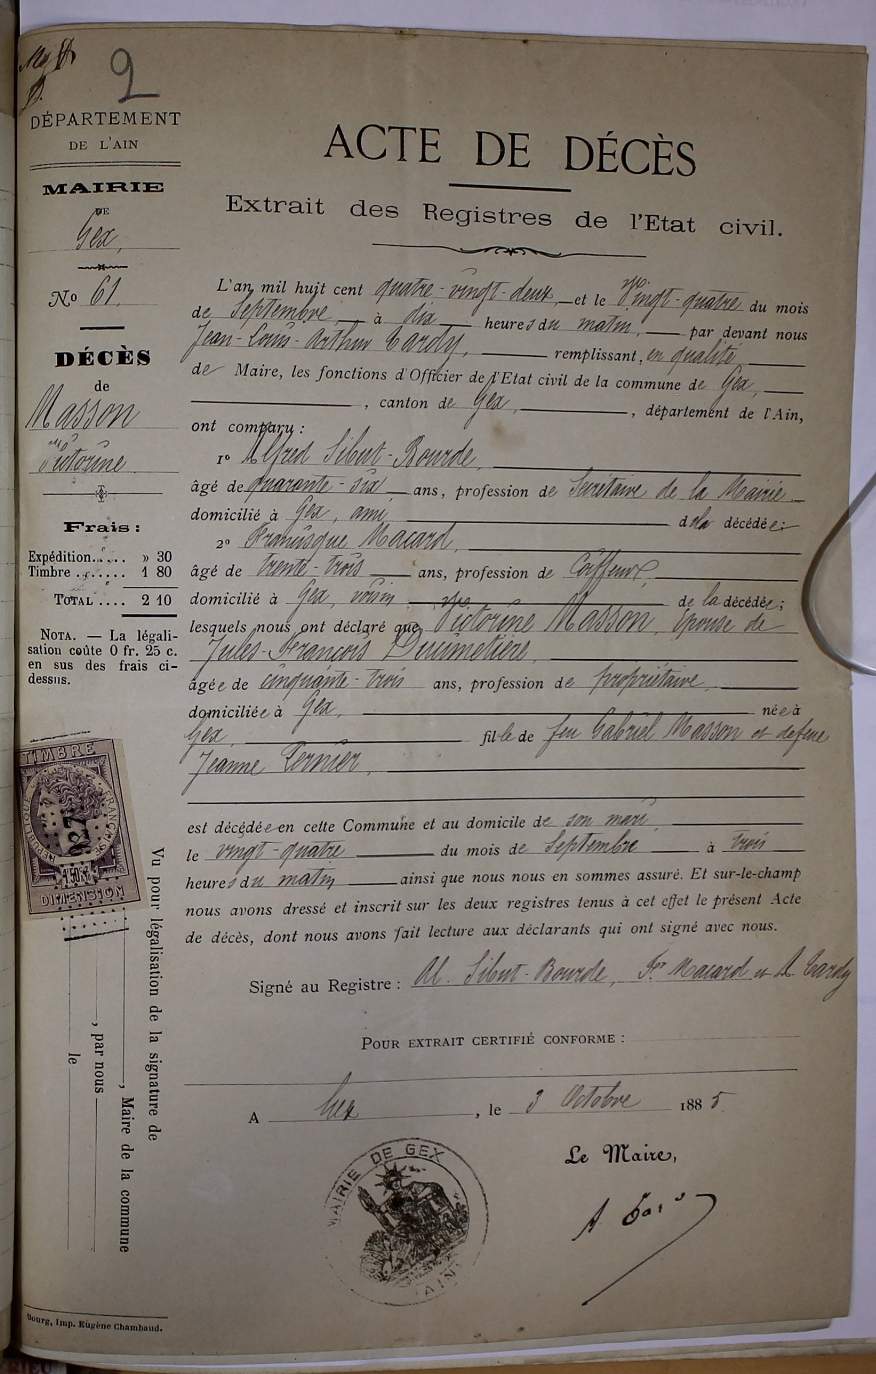 2
DÉPARTEMENT
DE L'AIN
MAIRIE
DE
Gex,
No 61
DÉCÈS
de
Masson
Victorine
Frais :
Expédition..... » 30
Timbre....... 1 80
TOTAL.... 2 10
NOTA. — La légali-
sation coûte 0 fr. 25 c.
en sus des frais ci-
dessus.
TIMBRE
RÉPUBLIQUE FRANÇAISE
DIMENSION
Vu pour légalisation de la signature de
, Maire de la commune
, par nous
le
Bourg, Imp. Eugène Chambaud.
ACTE DE DÉCÈS
Extrait des Registres de l'Etat civil.
L'an mil huit cent quatre-vingt-deux, et le Vingt-quatre du mois
de Septembre à dix heures du matin, par devant nous
Jean-Louis-Arthur Tardy, remplissant, en qualité
de Maire, les fonctions d'Officier de l'Etat civil de la commune de Gex,
, canton de Gex, , département de l'Ain,
ont comparu :
1o Alfred Sibut-Bourde,
âgé de quarante-six ans, profession de Secrétaire de la Mairie
domicilié à Gex, ami de la décédée;
2o Francisque Macard,
âgé de trente-trois ans, profession de Coiffeur,
domicilié à Gex, voisin de la décédée;
lesquels nous ont déclaré que Victorine Masson, épouse de
Jules-François Ducimetière,
âgée de cinquante-trois ans, profession de propriétaire,
domiciliée à Gex, née à
Gex, fille de feu Gabriel Masson et de feue
Jeanne Pernier,
est décédée en cette Commune et au domicile de son mari,
le vingt-quatre du mois de Septembre à trois
heures du matin ainsi que nous nous en sommes assuré. Et sur-le-champ
nous avons dressé et inscrit sur les deux registres tenus à cet effet le présent Acte
de décès, dont nous avons fait lecture aux déclarants qui ont signé avec nous.
Signé au Registre : Al. Sibut-Bourde, Fr Macard et A. Tardy
POUR EXTRAIT CERTIFIÉ CONFORME :
A Gex , le 3 Octobre 1885
Le Maire,
A Tardy
MAIRIE DE GEX
(AIN)